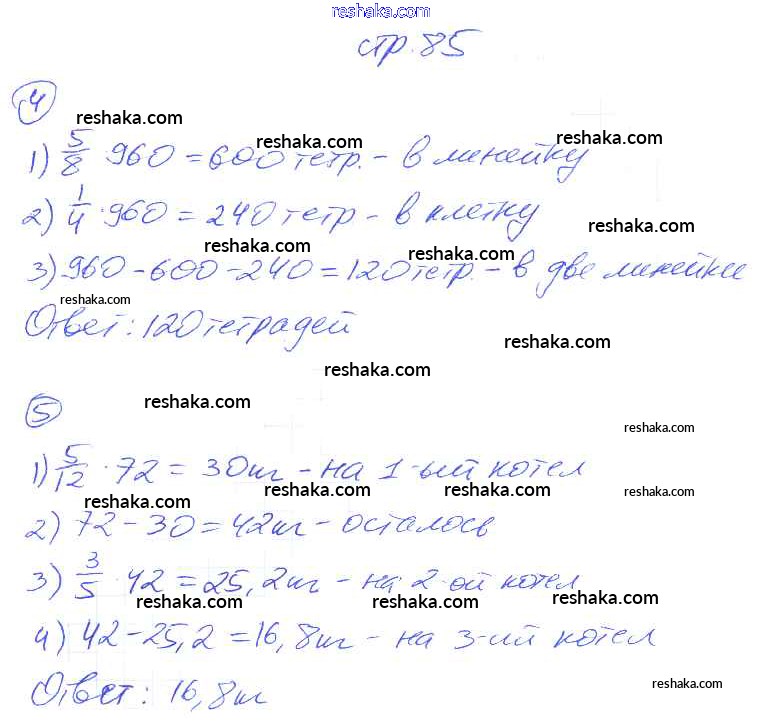 reshaka.com
стр. 85
4
reshaka.com
1) 5/8 · 960 = 600 тетр. - в линейку
reshaka.com reshaka.com
2) 1/4 · 960 = 240 тетр - в клетку
reshaka.com
reshaka.com reshaka.com
3) 960 - 600 - 240 = 120 тетр. - в две линейки
reshaka.com
Ответ: 120 тетрадей
reshaka.com
reshaka.com
5
reshaka.com
reshaka.com
1) 5/12 · 72 = 30 кг - на 1-ый котел
reshaka.com reshaka.com reshaka.com reshaka.com
2) 72 - 30 = 42 кг - осталось
3) 3/5 · 42 = 25,2 кг - на 2-ой котел
reshaka.com reshaka.com reshaka.com
4) 42 - 25,2 = 16,8 кг - на 3-ий котел
Ответ: 16,8 кг
reshaka.com